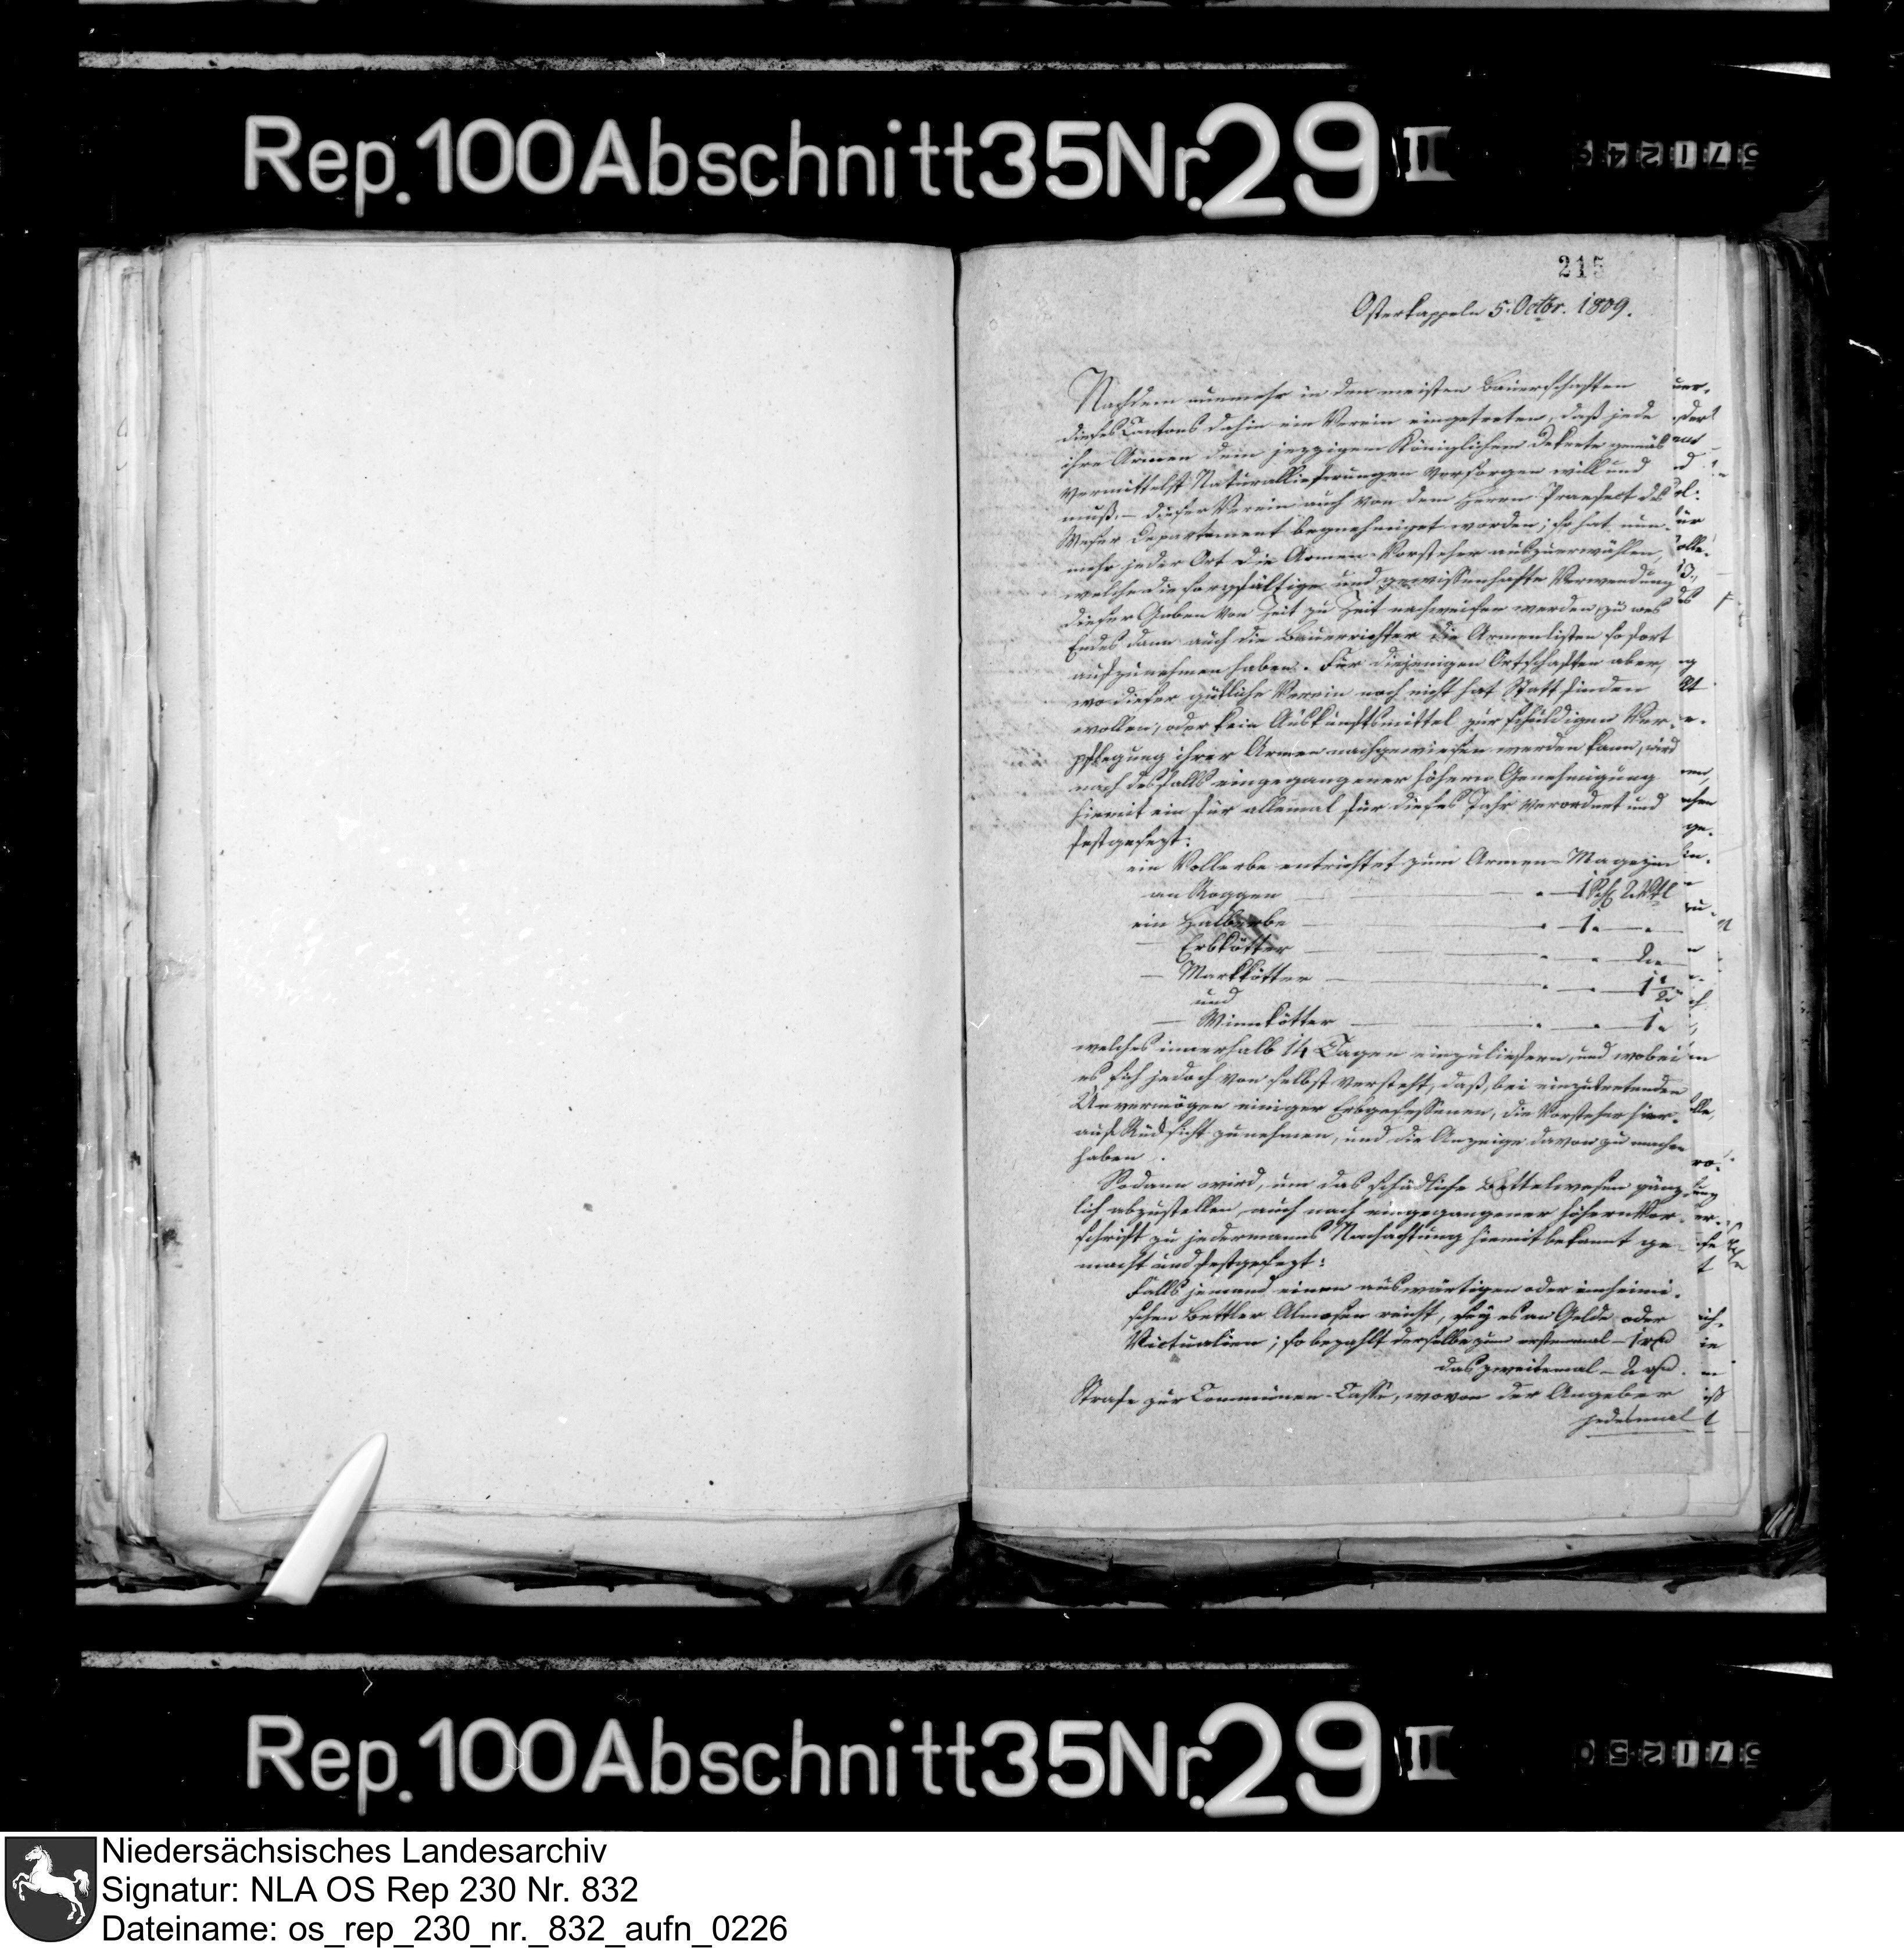 Rep. 100 Abschnitt 35 Nr. 29 II
215
Osterkappeln 5. Octbr. 1809.
Nachdem nunmehr in den meisten Bauerschaften
dieses Cantons dahin ein Verein eingetreten, daß jede
ihre Armen dem jezzigem Königlichem Dekrete gemäs
vermittelst Naturallieferungen versorgen will und
muß, – dieser Verein auch von dem Herrn Praefect des
Weser Departement begnehmiget worden; so hat nun
mehr jeder Ort die Armen-Vorsteher auszuerwählen,
welche die sorgfältige und gewissenhafte Verwendung
dieser Gaben von Zeit zu Zeit nachweisen werden, zu wes
Endes dann auch die Bauerrichter die Armenlisten sofort
aufzunehmen haben. Für diejenigen Ortschaften aber,
wo dieser gütliche Verein noch nicht hat Statt finden
wollen, oder kein Auskunftsmittel zur schuldigen Ver-
pflegung ihrer Armen nachgewiesen werden kann, wird
nach desfalls eingegangener höhern Genehmigung
hiemit ein für allemal für dieses Jahr verordnet und
festgesezt:
ein Vollerbe entrichtet zum Armen-Magazin
an Roggen — 1 Schfl 2 Vtl
ein Halberbe — 1 „ — „
— Erbkötter — „ — 2 „
— Markkötter — „ — 1 1/2 „
und
— Winnkötter — „ — 1 „
welches innerhalb 14 Tagen einzuliefern, und wobei
es sich jedoch von selbst versteht, daß, bei einzutretenden
Unvermögen einiger Erbgesessenen, die Vorsteher hier-
auf Rücksicht zu nehmen, und die Anzeige davon zu machen
haben.
Sodann wird, um das schädliche Bettelwesen gänz-
lich abzustellen, auch nach eingegangener höhern Vor-
schrift zu jedermanns Nachachtung hiemit bekannt ge-
macht und festgesezt:
Falls jemand einen auswärtigen oder einheimi-
schen Bettler Almosen reicht, sey es an Gelde oder
Victualien; so bezahlt derselbe zum erstenmal – 1 rth
das zweitemal – 2 rth.
Strafe zur Communen-Casse, wovon der Angeber
jedesmal
Rep. 100 Abschnitt 35 Nr. 29 II
Niedersächsisches Landesarchiv
Signatur: NLA OS Rep 230 Nr. 832
Dateiname: os_rep_230_nr._832_aufn_0226